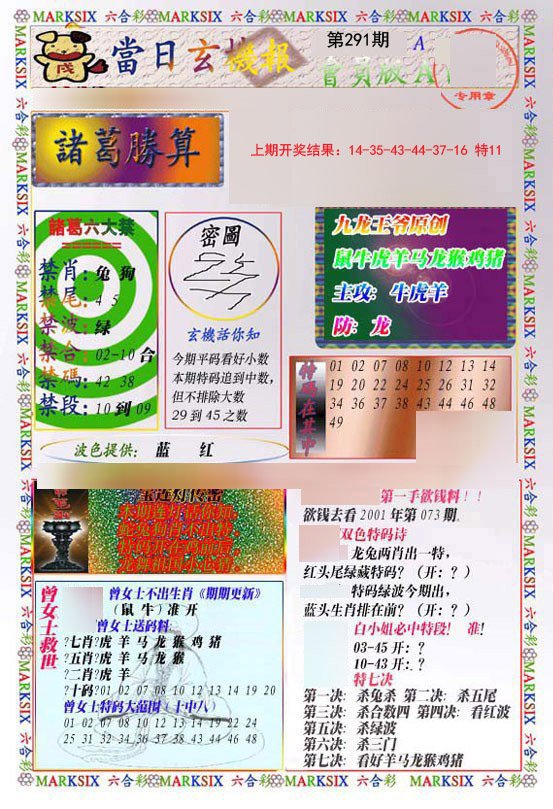 MARKSIX 六合彩 MARKSIX 六合彩 MARKSIX 六合彩 MARKSIX 六合彩 MARKSIX 六合彩
當日玄機報
第291期
A
會員版A
专用章
諸葛勝算
上期开奖结果：14-35-43-44-37-16 特11
諸葛六大禁
禁肖：兔 狗
禁尾：4 5
禁波：绿
禁合：02-10合
禁碼：42 38
禁段：10到09
密圖
玄機話你知
今期平码看好小数
本期特码追到中数，
但不排除大数
29到45之数
九龙王爷原创
鼠牛虎羊马龙猴鸡猪
主攻：牛虎羊
防：龙
01 02 07 08 10 12 13 14
19 20 22 24 25 26 31 32
34 36 37 38 43 44 46 48
49
波色提供： 蓝 红
第一手欲钱料！！
欲钱去看2001年第073期.
双色特码诗
龙兔两肖出一特，
红头尾绿藏特码？（开：？）
特码绿波今期出，
蓝头生肖排在前？（开：？）
白小姐必中特段！ 准！
03-45 开：？
10-43 开：？
特七决
第一决：杀兔杀 第二决：杀五尾
第三决：杀合数四 第四决：看红波
第五决：杀绿波
第六决：杀三门
第七决：看好羊马龙猴鸡猪
曾女士救世
曾女士不出生肖《期期更新》
（鼠 牛）准 开
曾女士送码料
?七肖?虎 羊 马 龙 猴 鸡 猪
?五肖?虎 羊 马 龙 猴
?二肖?虎 羊
?十码?01 02 07 08 10 12 13 14 19 20
曾女士特码大范围（十中八）
01 02 07 08 10 12 13 14 19 22 24
25 31 32 34 36 37 38 43 44 46 48
MARKSIX 六合彩 MARKSIX 六合彩 MARKSIX 六合彩 MARKSIX 六合彩 MARKSIX 六合彩